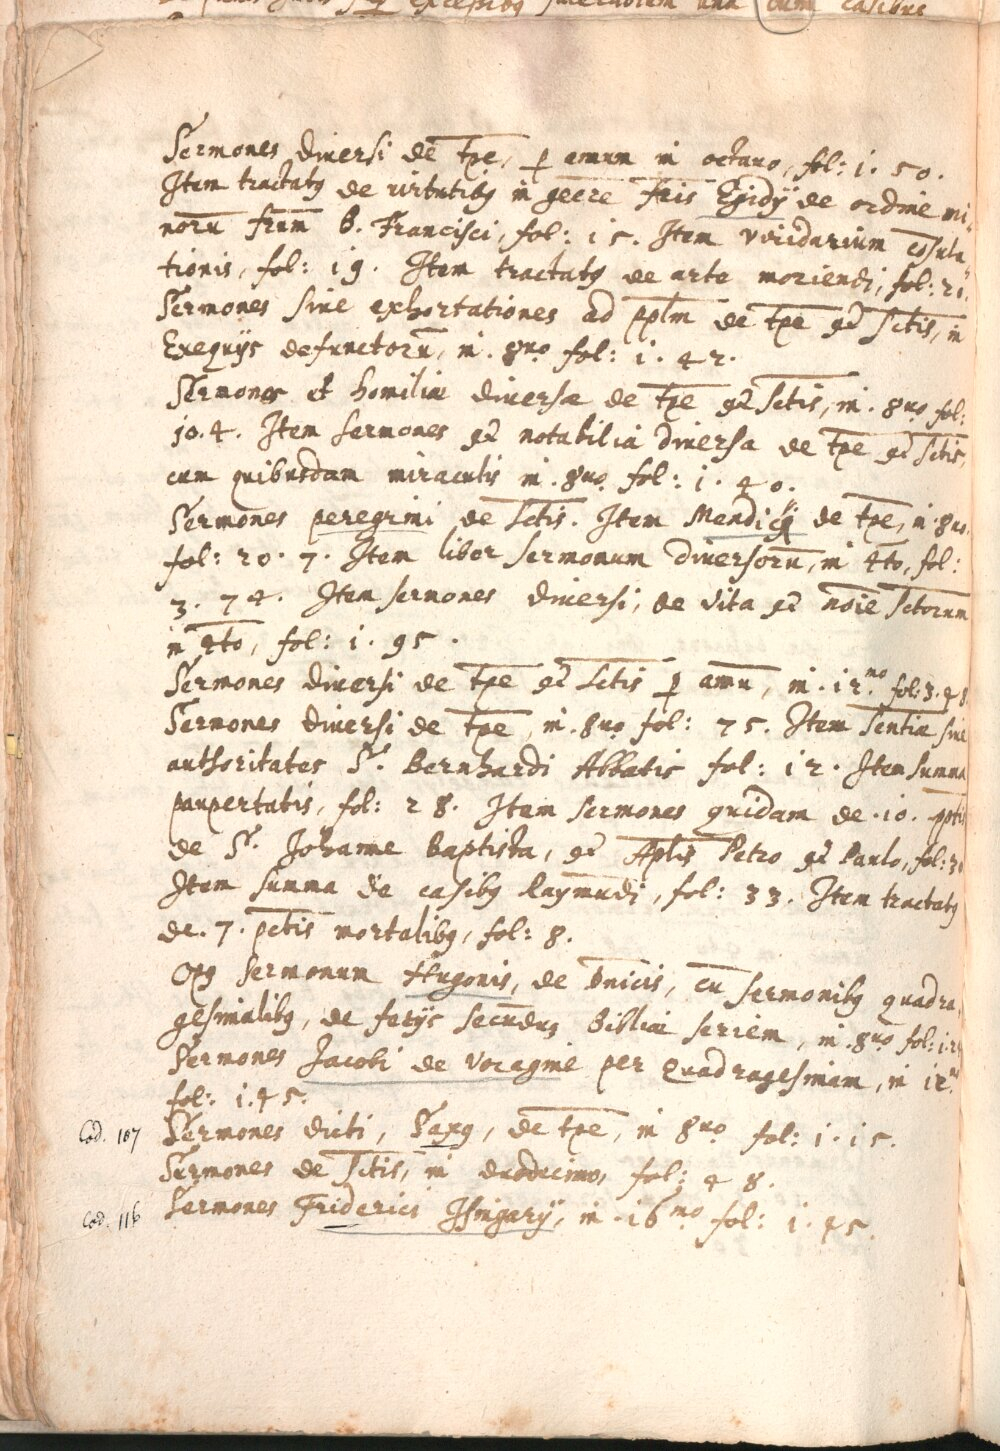 excepitq sacerdotem una cum casibus
Sermones diuersi de tp̄e, p annum in octauo, fol: 1. 50.
Item tractatq de uirtutibq in gēere frīs Egidÿ de ordine mi-
norū frum B. Francisci, fol: 15. Item viridarium cōsula-
tionis, fol: 19. Item tractatq de arte moriendi, fol: 21.
Sermones siue exhortationes ad pplm de tp̄e et sctis, in
Exequÿs defunctorū, in. 8uo fol: 1. 42.
Sermones et homiliæ diuersæ de tp̄e et sctis, in. 8uo fol:
10. 4. Item sermones et notabilia diuersa de tp̄e et sctis,
cum quibusdam miraculis in. 8uo fol: 1. 40.
Sermones peregrini de sctis. Item Mendicÿ de tp̄e, in. 8uo.
fol: 20. 7. Item liber sermonum diuersorū, in 4to, fol:
3. 74. Item sermones diuersi, de vita et noīe sctorum
in 4to, fol: 1. 95.
Sermones diuersi de tp̄e et sctis p annū, in. 12.mo fol: 3. 48
Sermones diuersi de tp̄e, in. 8uo fol: 75. Item sentiæ siue
authoritates St. Bernhardi Abbatis fol: 12. Item summa
paupertatis, fol: 28. Item sermones quidam de. 10. pptis
de St. Johanne Baptista, et Aplis Petro et Paulo, fol: 30
Item summa de casibq Raymūdi, fol: 33. Item tractatq
de. 7. pctis mortalibq, fol: 8.
Opq sermonum Hugonis, de Dnicis, cū sermonibq quadra-
gesimalibq, de ferÿs secūdus Bibliæ seriem, in. 8uo fol:
Sermones Jacobi de Voragine per Quadragesimam, in 12mo
fol: 1. 45.
Cod. 107 Sermones dicti, Saxq, de tp̄e, in 8uo fol: 1. 15.
Sermones de sctis, in duodecimo, fol: 48.
Cod. 116 Sermones Friderici Hungarÿ, in. 16mo fol: 1. 45.